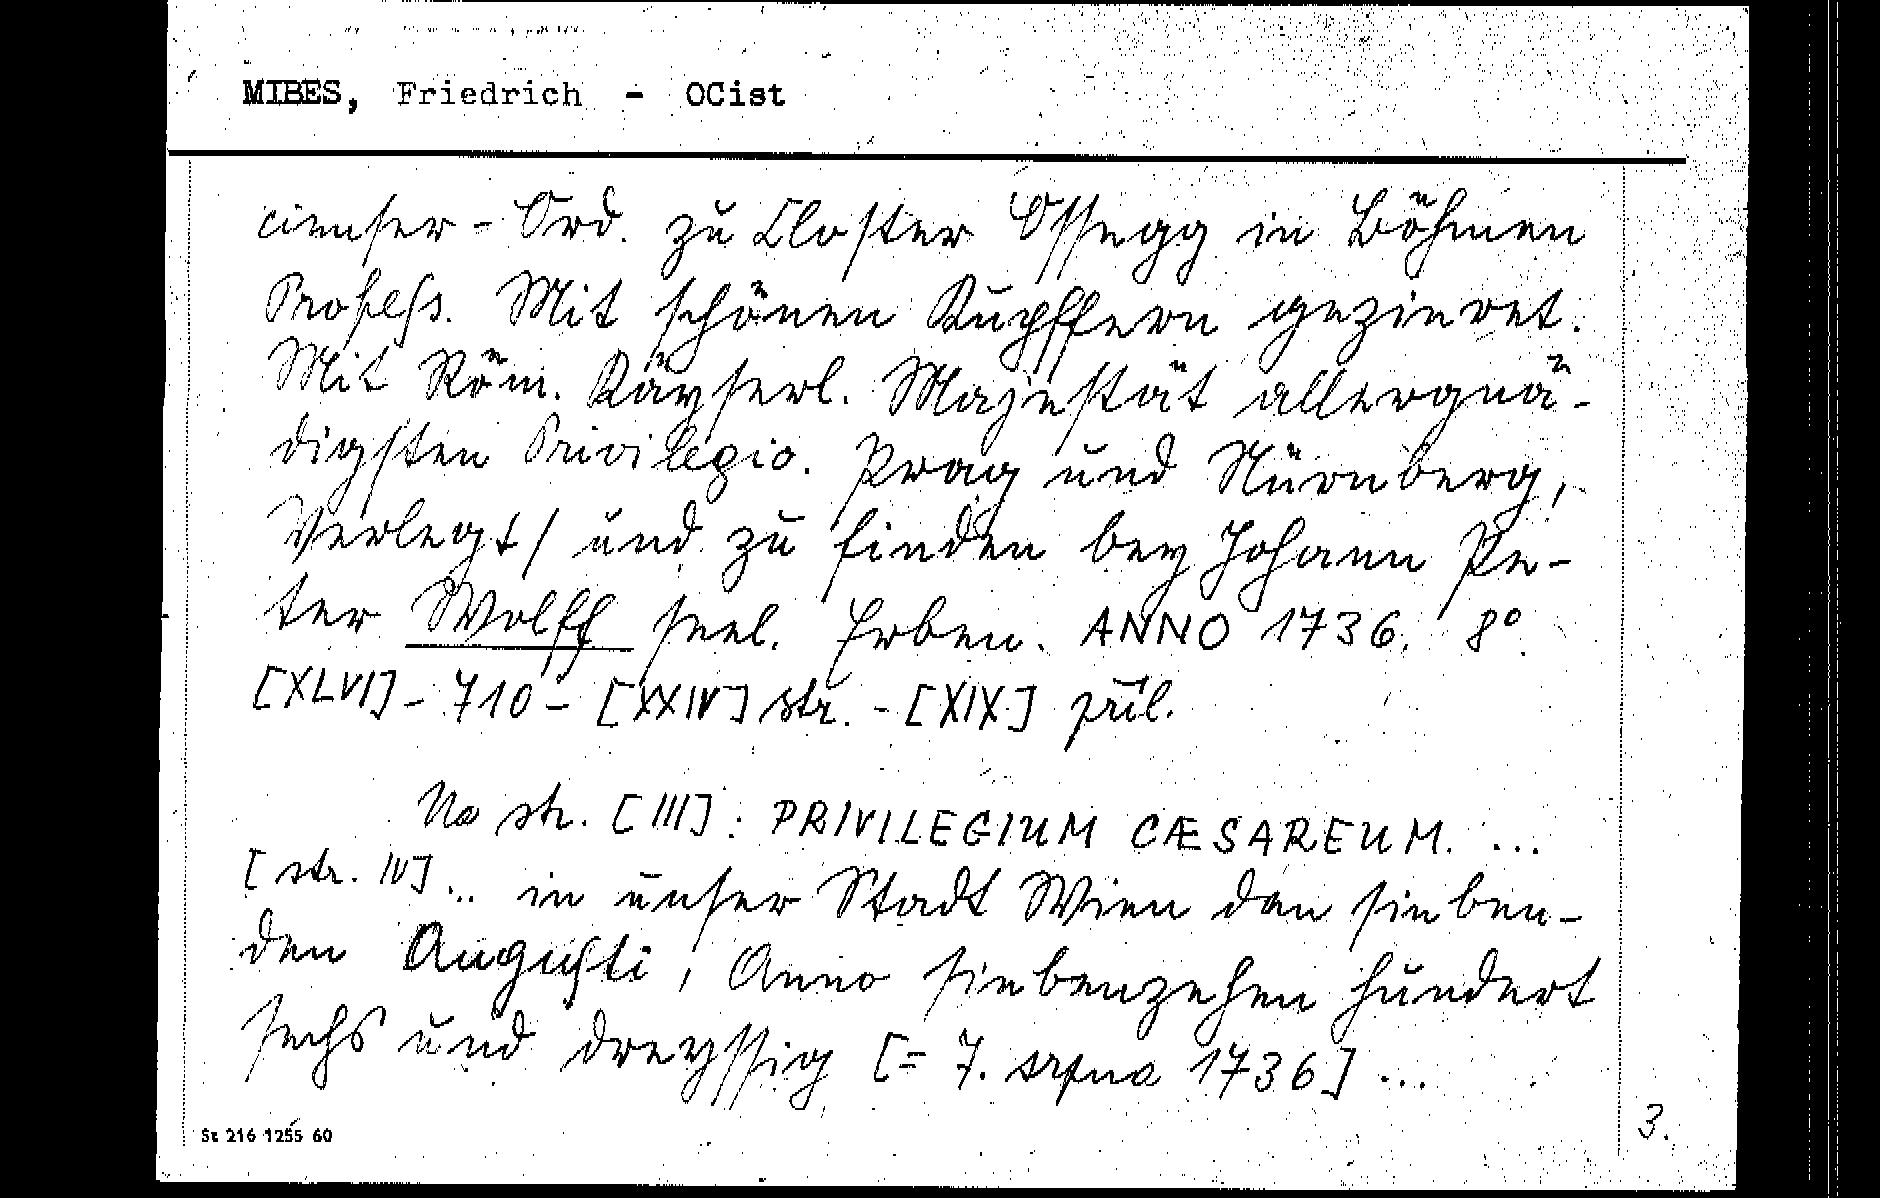 MIBES, Friedrich - OCist
cienser-Ord. zu Closter Ossegg in Böhmen
Profess. Mit schönen Kupffern gezieret.
Mit Röm. Käyserl. Majestät allergnä-
digsten Privilegio. Prag und Nürnberg,
Verlegt/ und zu finden bey Johann Pe-
ter Wolff seel. Erben. ANNO 1736. 8°.
[XLVI] - 710 - [XXIV] str. - [XIX] příl.
Na str. [III]: PRIVILEGIUM CÆSAREUM. ...
[str. IV] ... in unser Stadt Wien den sieben-
den Augusti, Anno siebenzehen hundert
sechs und dreyssig [= 7. srpna 1736] ...
St 216 1255 60
3.